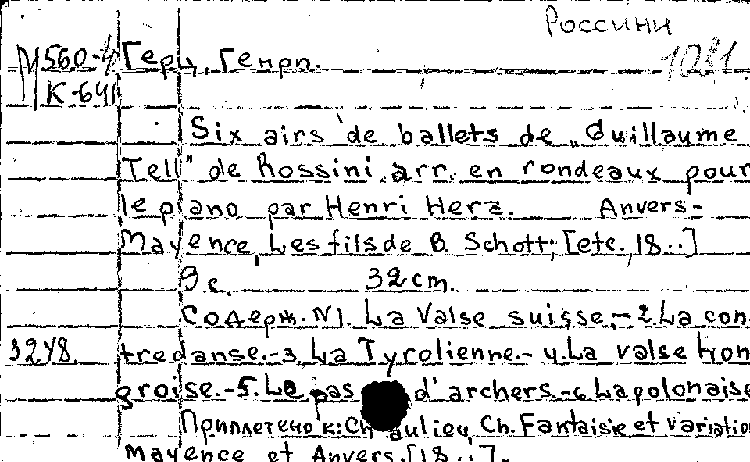 Россини
M 560-4 Герц, Генри. 1081
К-641
Six airs de ballets de „Guillaume
Tell" de Rossini, arr. en rondeaux pour
le piano par Henri Herz. Anvers-
Mayence, Les fils de B. Schott; [etc., 18..]
9 с. 32 cm.
Содерж. N1. La Valse suisse.-2. La con
3248. tredanse.-3. La Tyrolienne.-4. La valse hon
groise.-5. Le pas d'archers.-6. La polonaise
Приплетено к: Chaulieu, Ch. Fantaisie et variatio
Mayence et Anvers, [18..].